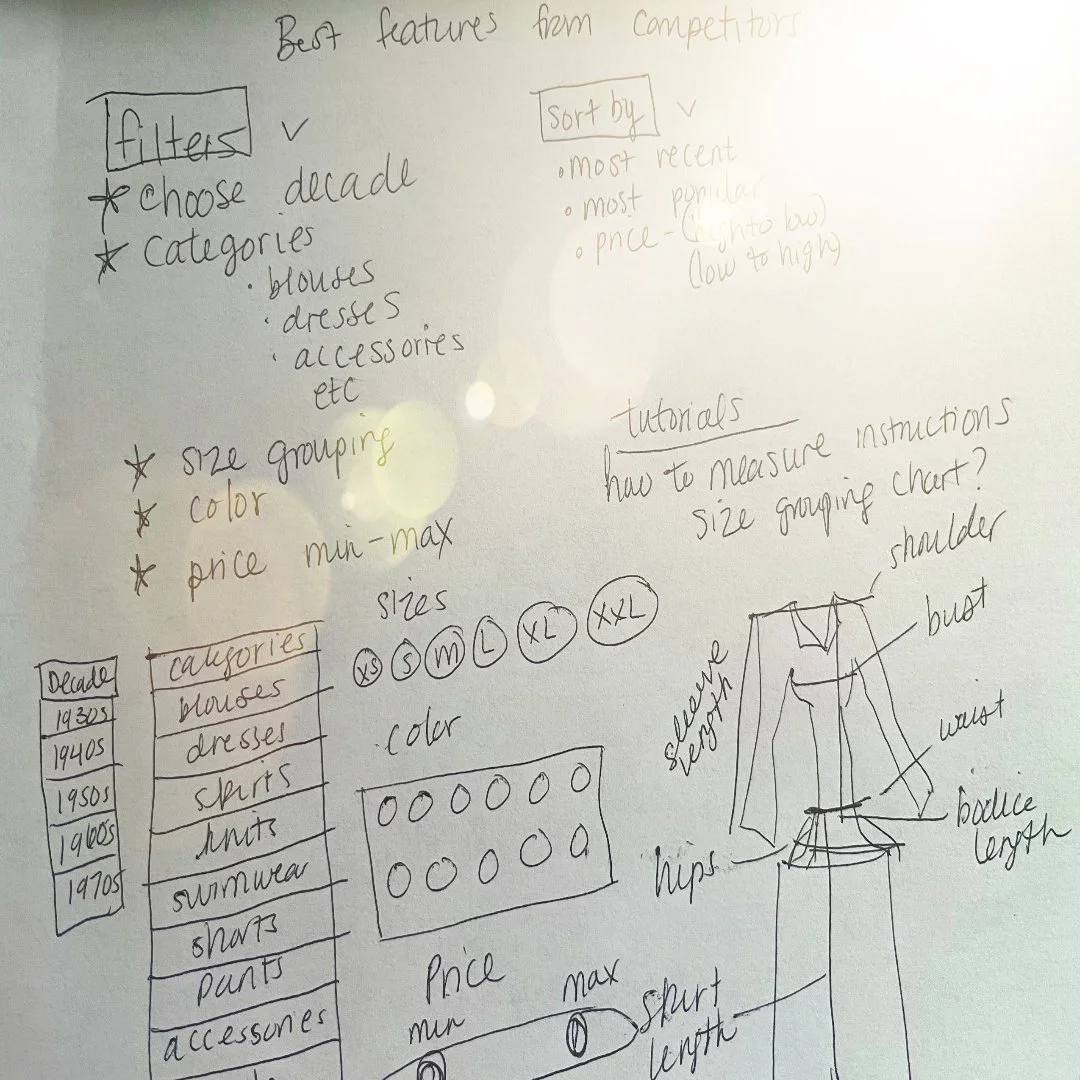 Best features from competitors
filters
★ choose decade
★ categories
• blouses
• dresses
• accessories
etc
★ size grouping
★ color
★ price min-max
sort by
• most recent
• most popular
• price - (high to low)
(low to high)
tutorials
how to measure instructions
size grouping chart?
Decade
1930s
1940s
1950s
1960s
1970s
categories
blouses
dresses
skirts
knits
swimwear
shorts
pants
accessories
sizes
XS S M L XL XXL
color
Price
min
max
shoulder
bust
sleeve
length
waist
bodice
length
hips
skirt
length